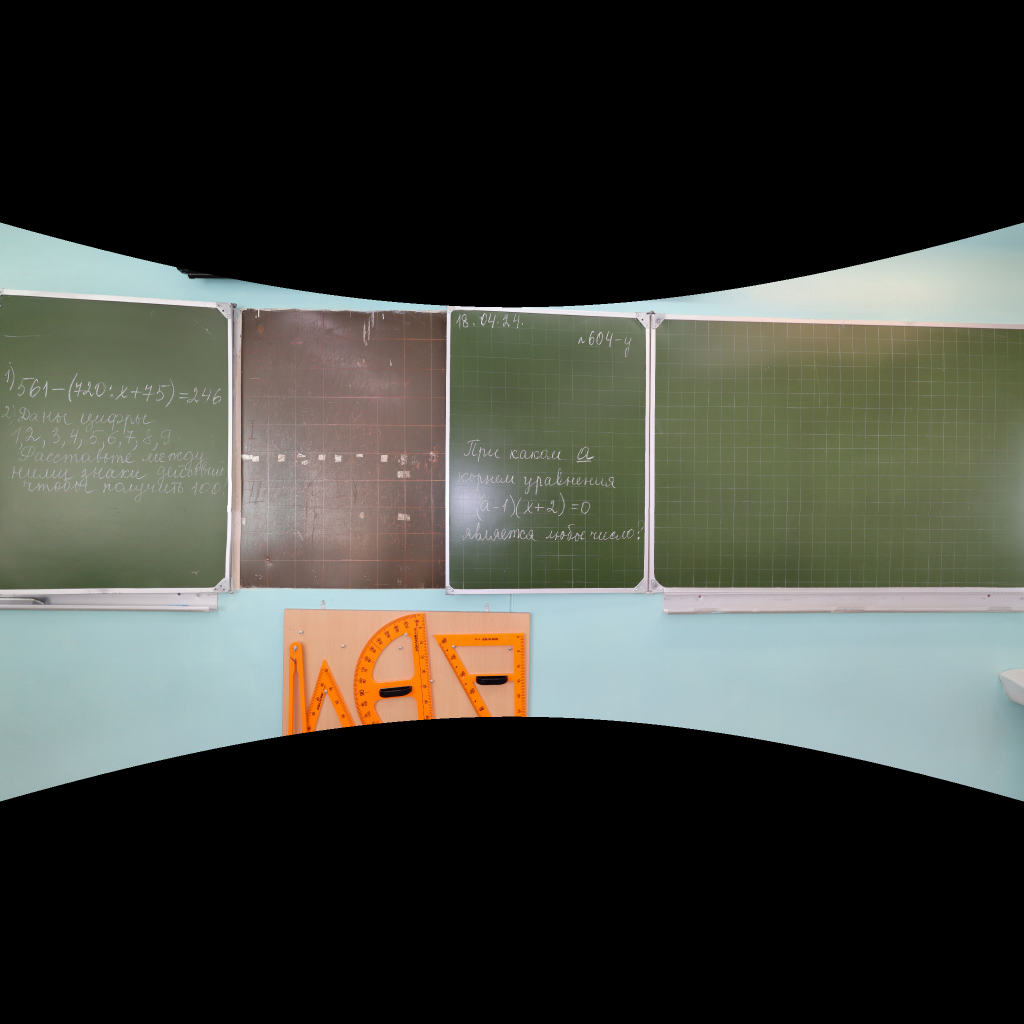 1) 561-(720:x+75)=246
2. Даны цифры
1,2,3,4,5,6,7,8,9.
Расставьте между
ними знаки действий
чтобы получить 100.
18.04.24.
№604-у
При каком a
корнем уравнения
(a-1)(x+2)=0
является любое число?